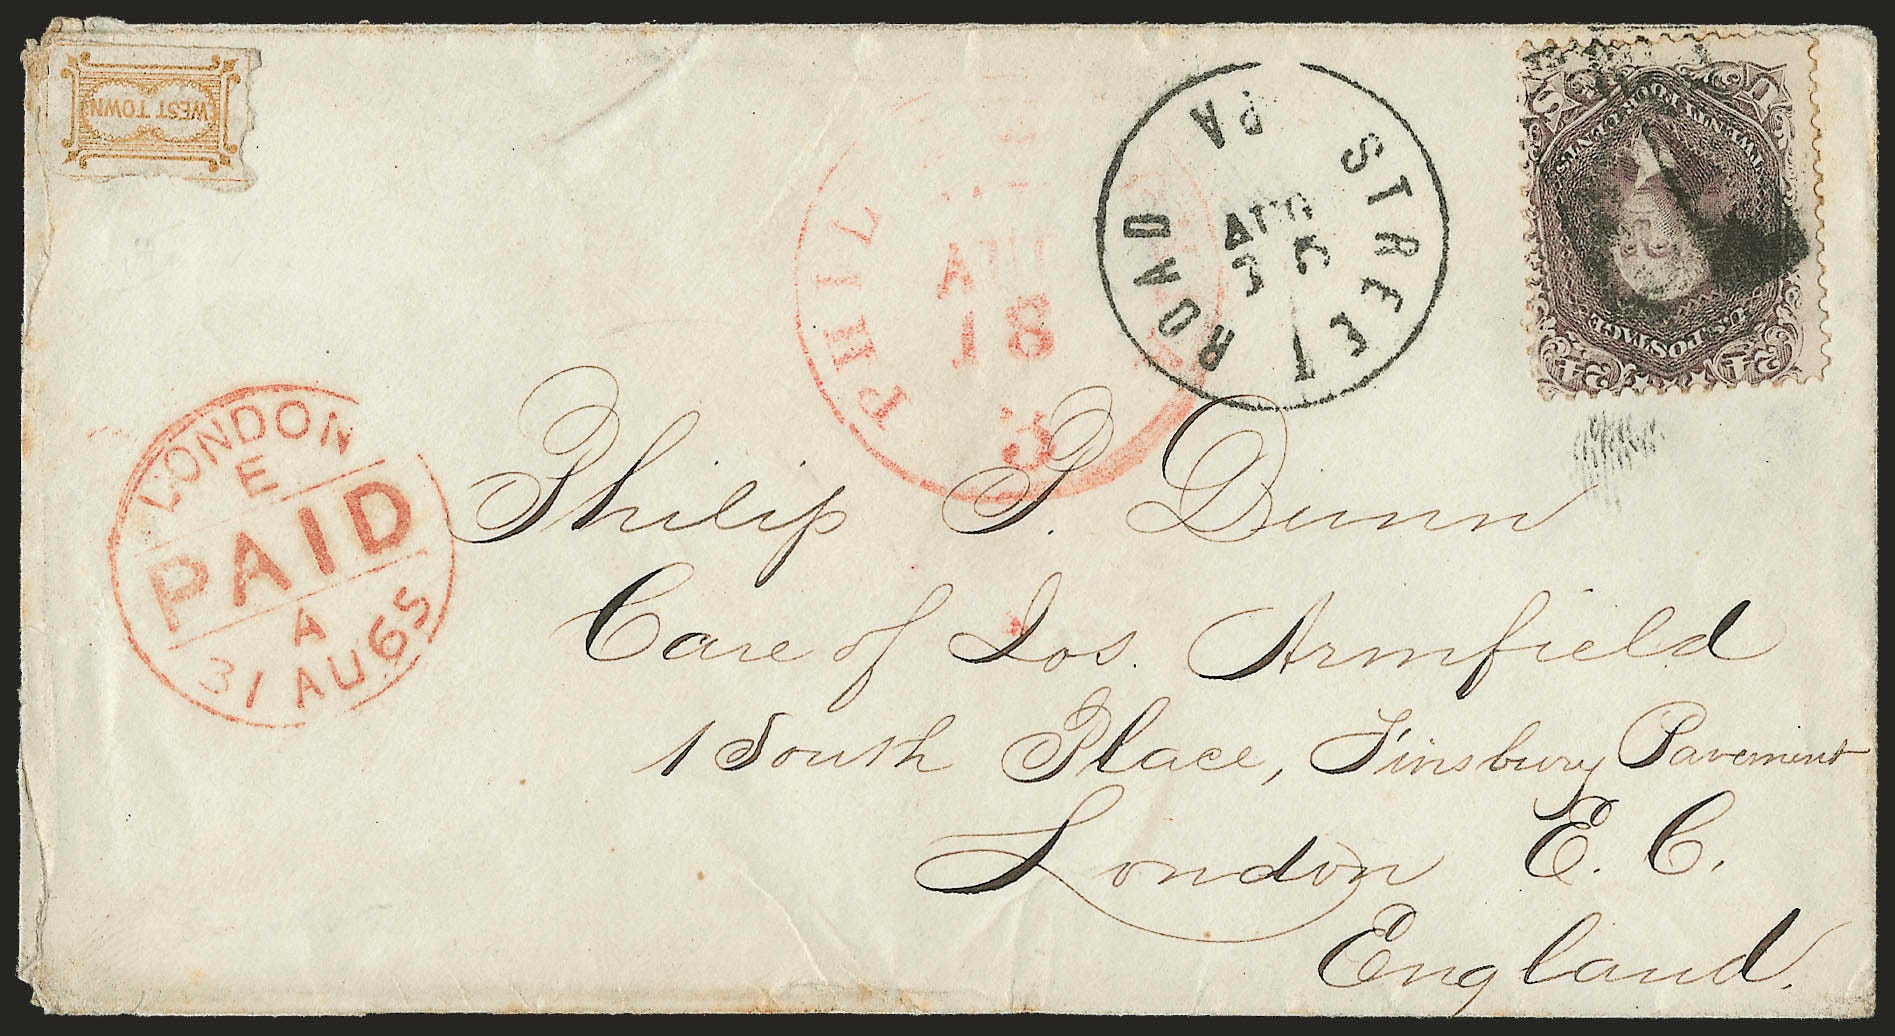 WEST TOWN
STREET ROAD PA
AUG
PHIL
18
3
U S
TWENTY FOUR CENTS
U.S. POSTAGE
24 24
LONDON
E
PAID
A
31 AU 65
Philip P. Dunn
Care of Jos. Armfield
1 South Place, Finsbury Pavement
London E. C.
England.